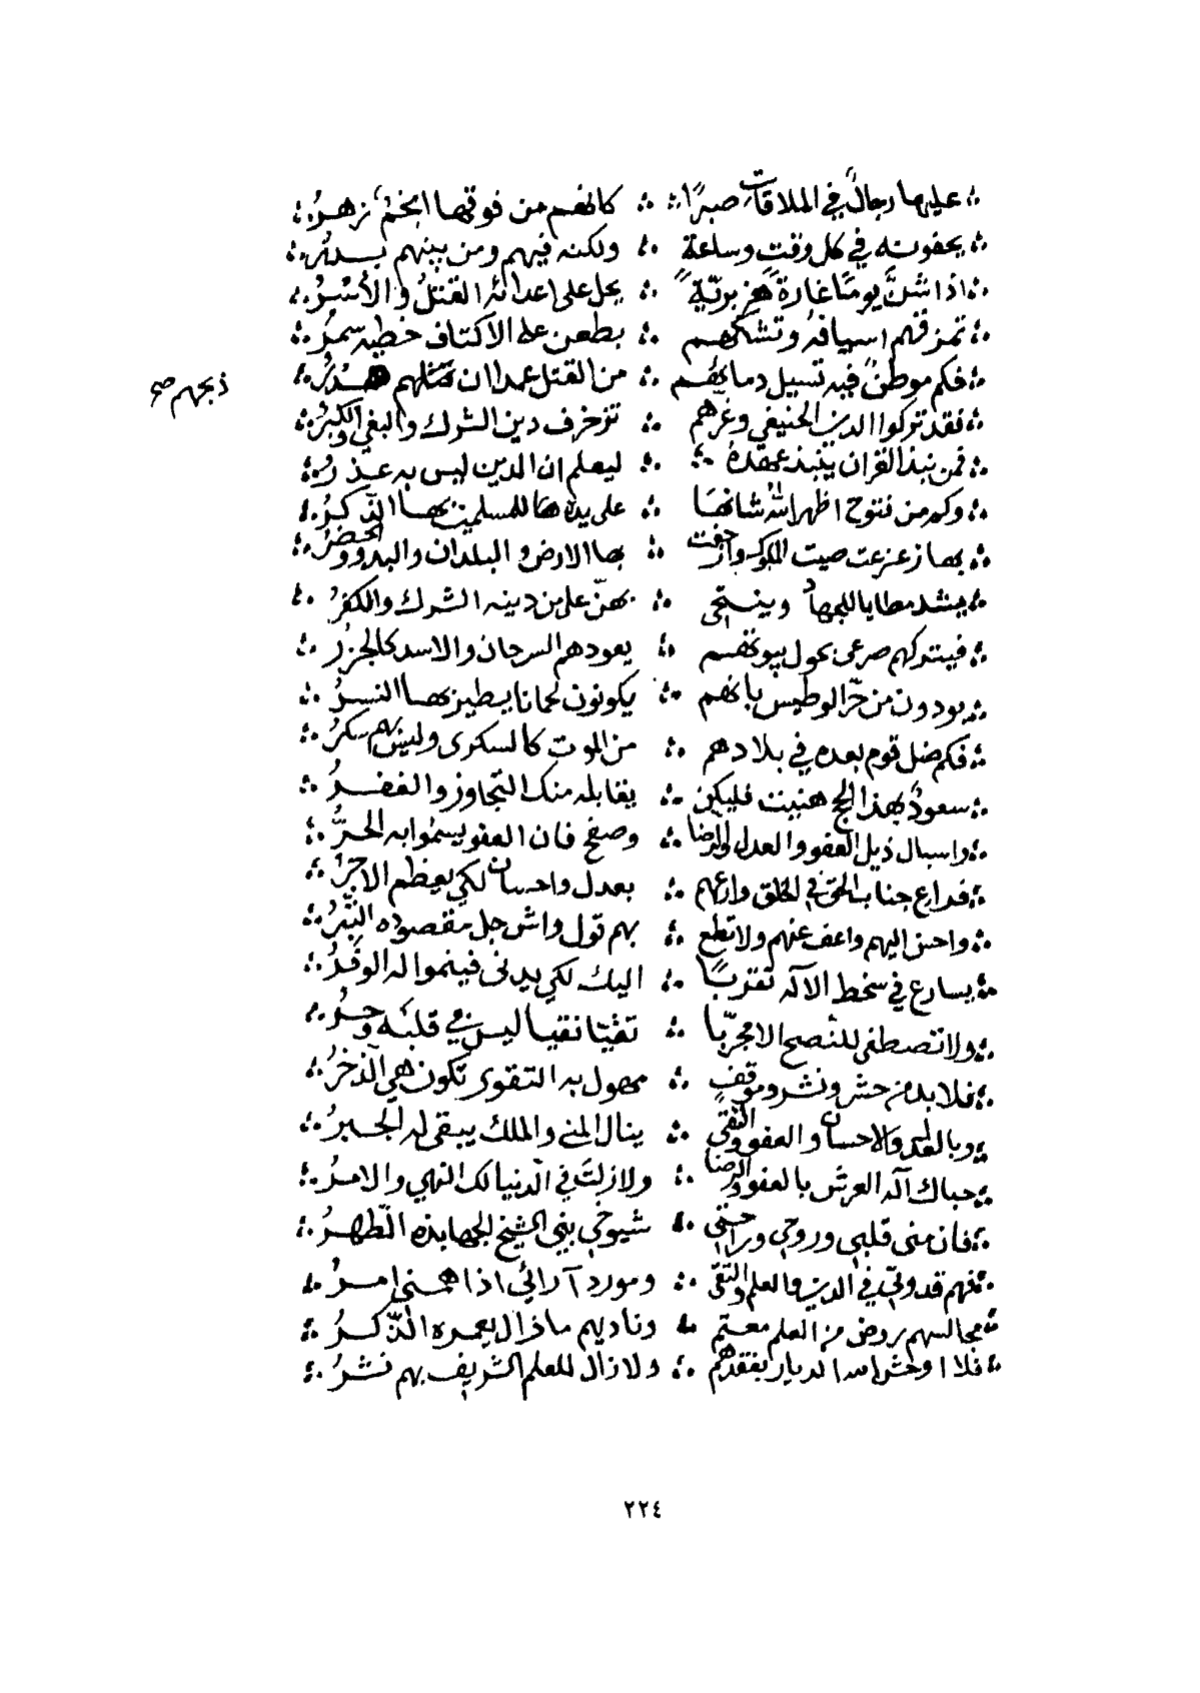 عليها رجالٌ في الملاقات صبرًا ∴ كانهم من فوقها انجمٌ زهرُ
يحفونه في كل وقتٍ وساعة ∴ ولكنه فيهم ومن بينهم بدرُ
اذا شنَّ يومًا غارةً هزبريّةً ∴ يحل على اعدائه القتلُ والأسرُ
تمزقهم اسيافه وتشكهم ∴ بطعن على الاكتاف خطيه سمرُ
فكم موطنٍ فيه تسيل دمائهم ∴ من القتل عمدا ان قتلهم هدرُ
ذبحهم صح
فقد تركوا الدين الحنيفي وغرهم ∴ تزخرف دين الشرك والبغي والكبرُ
فمن نبذ القران ينبذ عهده ∴ ليعلم ان الدين ليس به عذرُ
وكم من فتوح اظهر الله شانها ∴ على يده ها للمسلمين بها الذكرُ
بها زعزعت صيت الملوك وارجفت ∴ بها الارض والبلدان والبدو والحضرُ
يشد مطايا للجهاد وينتحي ∴ بهنّ على من دينه الشرك والكفرُ
فيتركهم صرعى بحول بيوتهم ∴ يعودهم السرحان والاسد كالجزرُ
يودون من حرّ الوطيس بانهم ∴ يكونون لحمانا يطير بها النسرُ
فكم ضل قوم بعده في بلادهم ∴ من الموت كالسكرى وليس بهم سكرُ
سعودٌ بهذا الحج هنيت فليكن ∴ يقابله منك التجاوز والغفرُ
واسبال ذيل العفو والعدل والرضا ∴ وصفح فان العفو يسموا به الحرُّ
فراع جناب الحق في الخلق وارعهم ∴ بعدل واحسان لكي يعظم الاجرُ
واحسن اليهم واعف عنهم ولا تطع ∴ بهم قول واش جل مقصوده التبرُ
يسارع في سخط الآله تقربًا ∴ اليك لكي يدنى فينموا له الوفرُ
ولا تصطفي للنصح الا مجرّبا ∴ تقيّا نقيا ليس في قلبه وحرُ
فلا بد من حشر ونشر وموقف ∴ مهول به التقوى تكون هي الذخرُ
وبالعدل والاحسان والعفو والتقى ∴ ينال المنى والملك يبقى له الجبرُ
حباك آله العرش بالعفو والرضا ∴ ولا زلتَ في الدنيا لك النهي والامرُ
فان منى قلبي وروحي وراحتي ∴ شيوخي بني الشيخ الجهابذه الطهرُ
فهم قدوتي في الدين والعلم والتقى ∴ ومورد آرائي اذا همنى امرُ
مجالسهم روض من العلم معتم ∴ وناديهم ما ذال يعمره الذّكرُ
فلا اوحش الله الديار بفقدهم ∴ ولا زال للعلم الشريف بهم نشرُ
٢٢٤